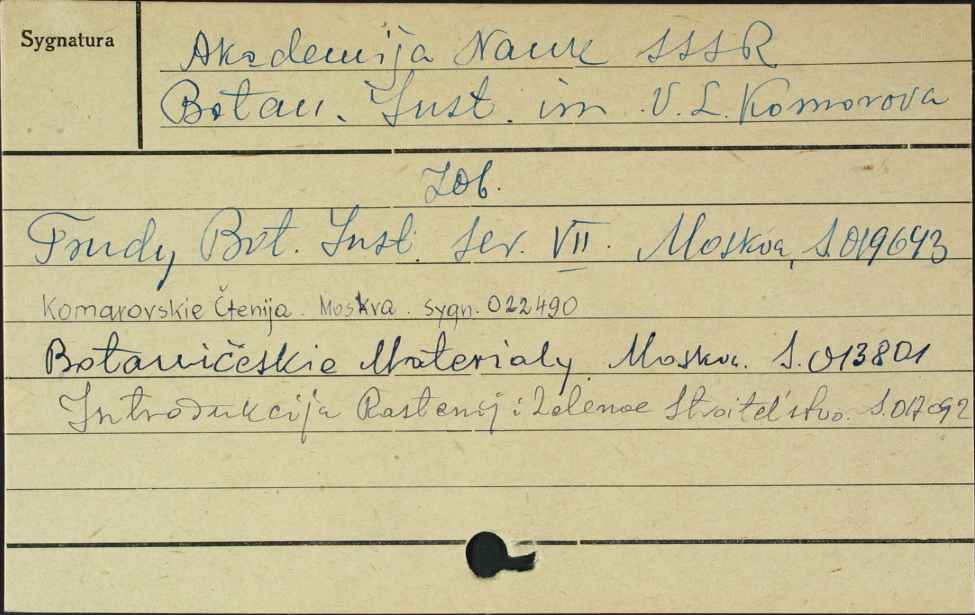 Sygnatura
Akademija Nauk SSSR
Botan. Inst. im V. L. Komorova
Zob.
Trudy Bot. Inst. Ser. VII. Moskva, S.019643
Komarovskie Čtenija. Moskva. sygn. 022490
Botaničeskie Materialy. Moskva. S.013801
Introdukcija Rastenij i Zelenoe Stroitel'stvo. S.017092